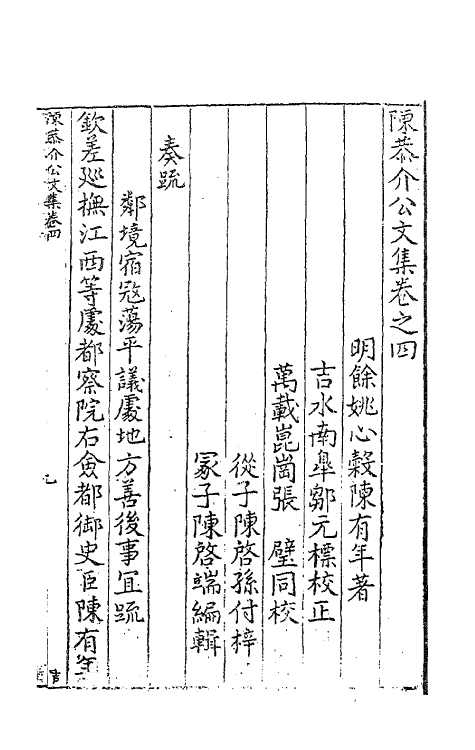 陳恭介公文集卷之四
明餘姚心穀陳有年著
吉水南臯鄒元標校正
萬載崑崗張　璧同校
從子陳啓孫付梓
冢子陳啓端編輯
奏疏
鄰境宿宼蕩平議處地方善後事宜疏
欽差廵撫江西等處都察院右僉都御史臣陳有年
陳恭介公文集卷四